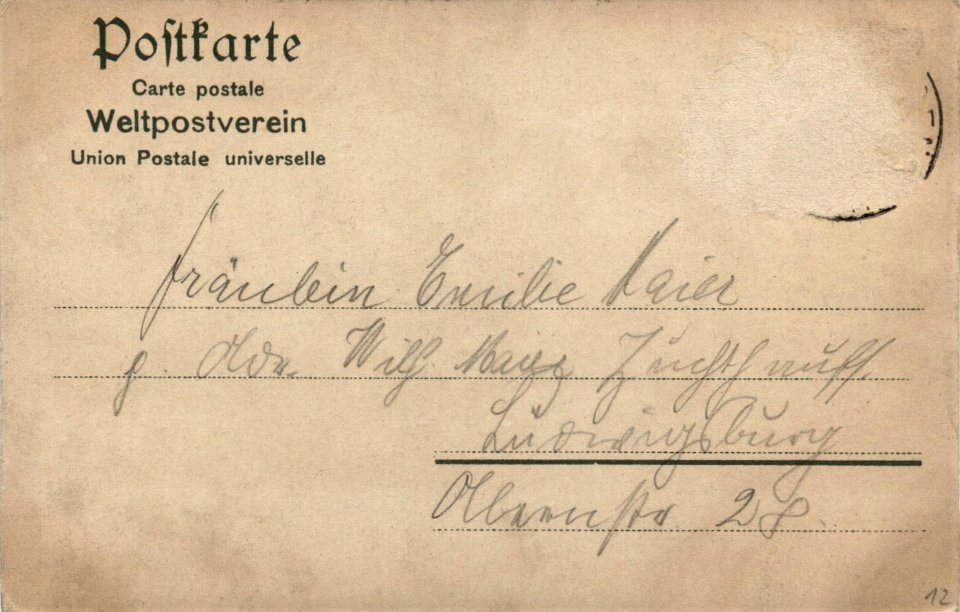 Postkarte
Carte postale
Weltpostverein
Union Postale universelle
Fräulein Emilie Maier
p. Adr. Wilh. Maier Zuchthauss
Ludwigsburg
28.
12